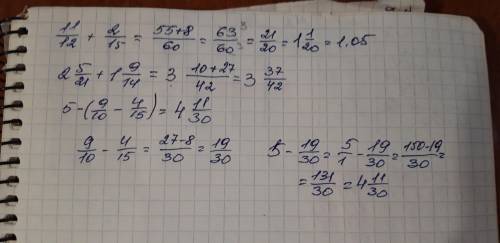 11/12 + 2/15 = 55+8/60 = 63/60 ³ ³ = 21/20 = 1 1/20 = 1.05
2 5/21 + 1 9/14 = 3 10+27/42 = 3 37/42
5-(9/10 - 4/15) = 4 11/30
9/10 - 4/15 = 27-8/30 = 19/30
5 - 19/30 = 5/1 - 19/30 = 150-19/30 =
= 131/30 = 4 11/30